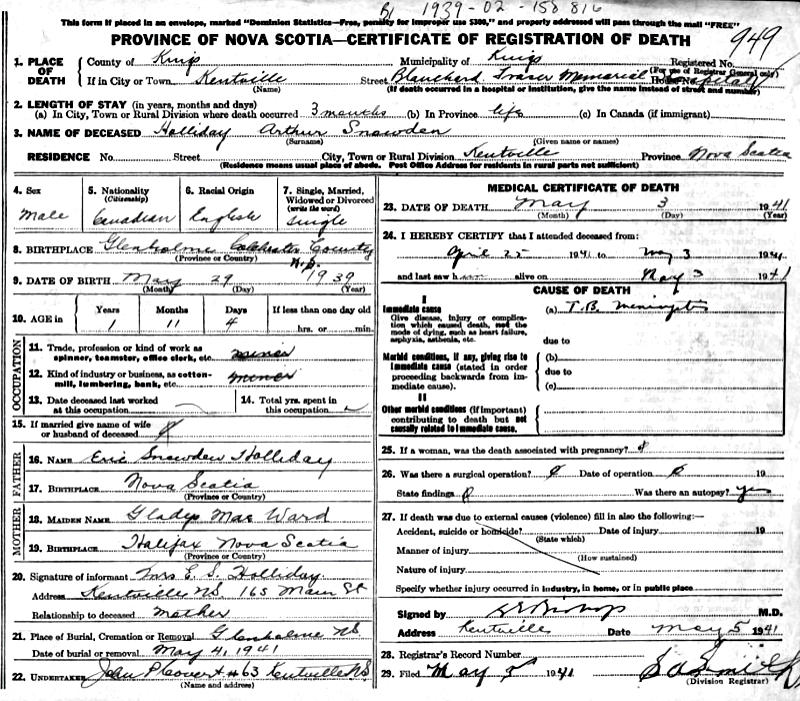 1939-02-158816
This form if placed in an envelope, marked "Dominion Statistics—Free, penalty for improper use $300," and properly addressed will pass through the mail "FREE"
PROVINCE OF NOVA SCOTIA—CERTIFICATE OF REGISTRATION OF DEATH
949
1. PLACE OF DEATH
County of Kings Municipality of Kings Registered No.
(For use of Registrar General only)
If in City or Town Kentville Street Blanchard Fraser Memorial Hospital
(Name) (If death occurred in a hospital or institution, give the name instead of street and number)
2. LENGTH OF STAY (in years, months and days)
(a) In City, Town or Rural Division where death occurred 3 months (b) In Province life (c) In Canada (if immigrant)
3. NAME OF DECEASED Holliday Arthur Snowden
(Surname) (Given name or names)
RESIDENCE No. Street City, Town or Rural Division Kentville Province Nova Scotia
(Residence means usual place of abode. Post Office Address for residents in rural parts not sufficient)
4. Sex
Male
5. Nationality
(Citizenship)
Canadian
6. Racial Origin
English
7. Single, Married, Widowed or Divorced
(write the word)
Single
8. BIRTHPLACE Glenholme Colchester County
(Province or Country) N.S.
9. DATE OF BIRTH May 29 1939
(Month) (Day) (Year)
10. AGE in
Years Months Days If less than one day old
1 11 4 hrs. or min.
OCCUPATION
11. Trade, profession or kind of work as
spinner, teamster, office clerk, etc. minor
12. Kind of industry or business, as cotton-
mill, lumbering, bank, etc. minor
13. Date deceased last worked
at this occupation
14. Total yrs. spent in
this occupation
15. If married give name of wife
or husband of deceased
FATHER
16. NAME Eric Snowden Holliday
17. BIRTHPLACE Nova Scotia
(Province or Country)
MOTHER
18. MAIDEN NAME Gladys Mae Ward
19. BIRTHPLACE Halifax Nova Scotia
(Province or Country)
20. Signature of informant Mrs E. S. Holliday
Address Kentville NS 165 Main St
Relationship to deceased Mother
21. Place of Burial, Cremation or Removal Glenholme NS
Date of burial or removal May 4, 1941
22. UNDERTAKER John P Covert #63 Kentville NS
(Name and address)
MEDICAL CERTIFICATE OF DEATH
23. DATE OF DEATH May 3 1941
(Month) (Day) (Year)
24. I HEREBY CERTIFY that I attended deceased from:
April 25 1941 to May 3 1941
and last saw him alive on May 3 1941
CAUSE OF DEATH
I
Immediate cause
Give disease, injury or complica-
tion which caused death, not the
mode of dying, such as heart failure,
asphyxia, asthenia, etc.
(a) T.B. Meningitis
due to
Morbid conditions, if any, giving rise to
immediate cause (stated in order
proceeding backwards from im-
mediate cause).
(b)
due to
(c)
II
Other morbid conditions (if important)
contributing to death but not
causally related to immediate cause.
25. If a woman, was the death associated with pregnancy?
26. Was there a surgical operation? Date of operation 19
State findings Was there an autopsy? yes
27. If death was due to external causes (violence) fill in also the following:—
Accident, suicide or homicide? Date of injury 19
(State which)
Manner of injury
(How sustained)
Nature of injury
Specify whether injury occurred in industry, in home, or in public place
Signed by M.D.
Address Kentville Date May 5 1941
28. Registrar's Record Number
29. Filed May 5 1941 S A Smith
(Division Registrar)